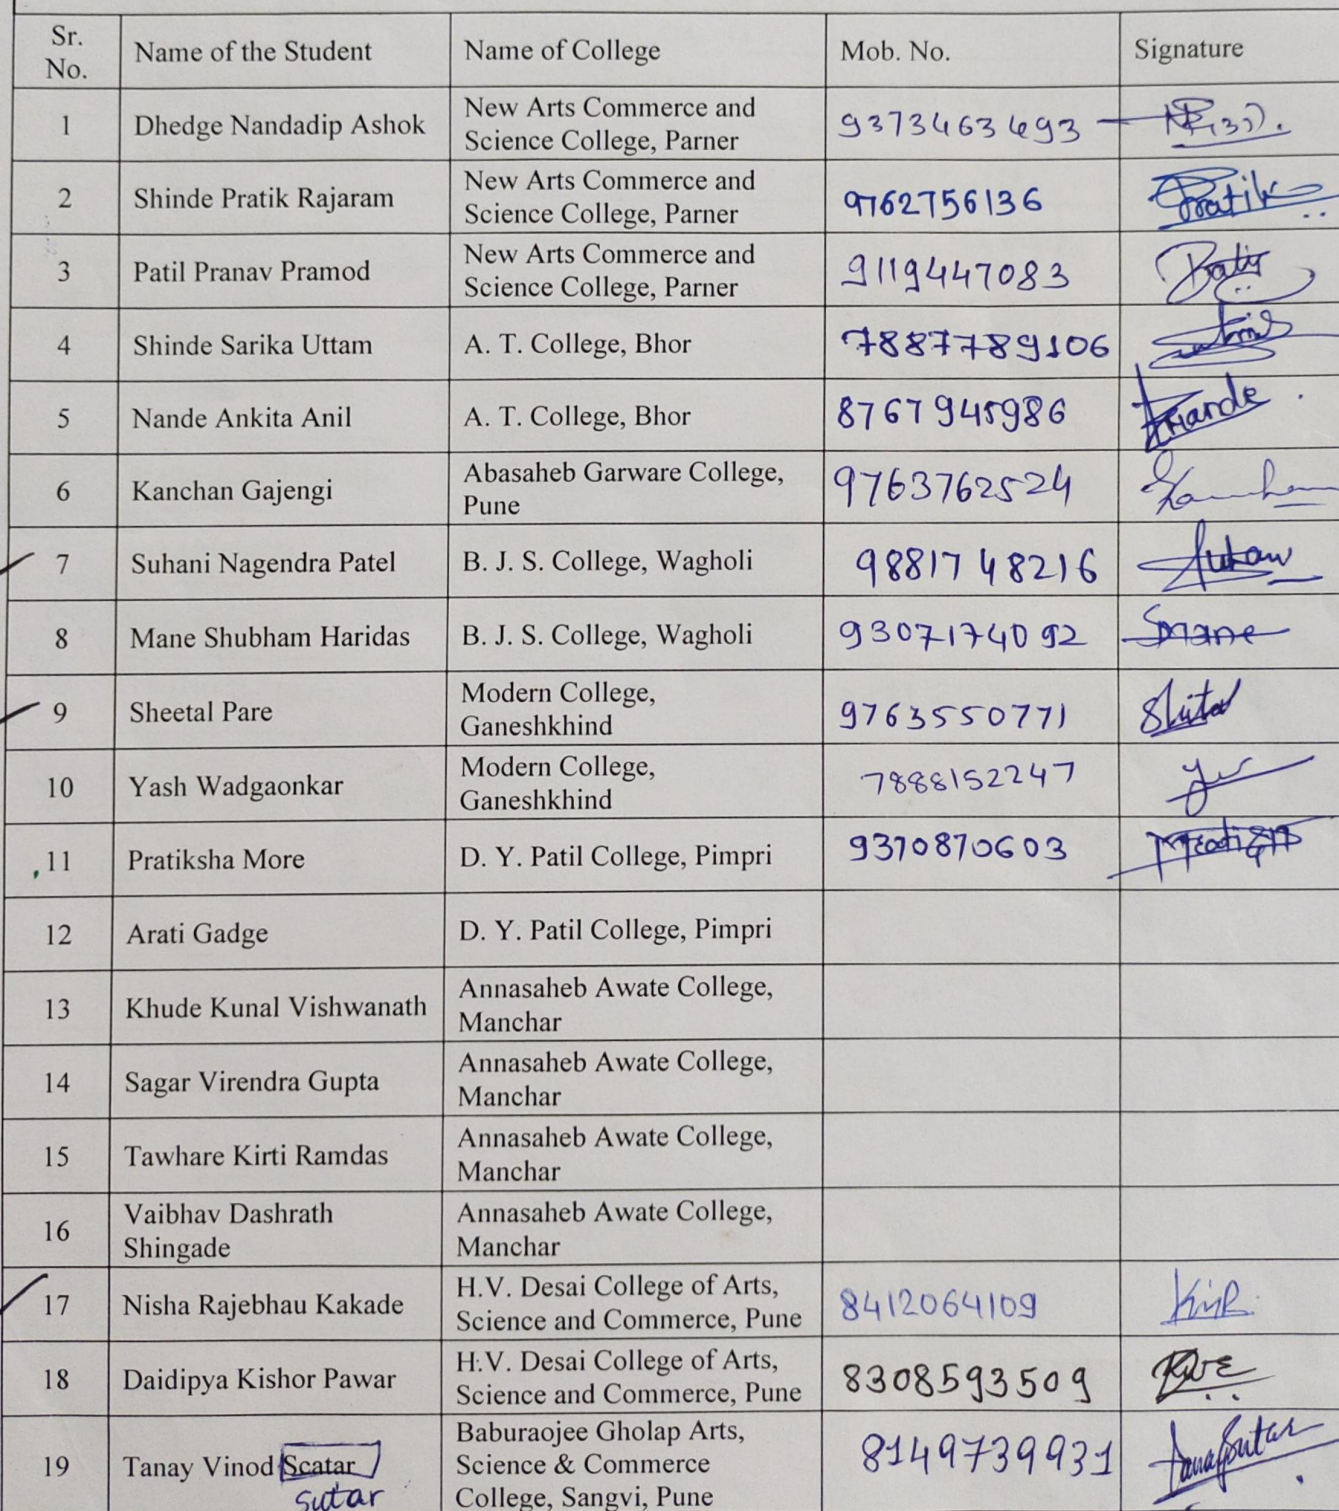 Sr. No. Name of the Student Name of College Mob. No. Signature
1 Dhedge Nandadip Ashok New Arts Commerce and Science College, Parner 9373463693
2 Shinde Pratik Rajaram New Arts Commerce and Science College, Parner 9762756136 Pratik
3 Patil Pranav Pramod New Arts Commerce and Science College, Parner 9119447083
4 Shinde Sarika Uttam A. T. College, Bhor 7887789106
5 Nande Ankita Anil A. T. College, Bhor 8767945986
6 Kanchan Gajengi Abasaheb Garware College, Pune 9763762524
7 Suhani Nagendra Patel B. J. S. College, Wagholi 9881748216
8 Mane Shubham Haridas B. J. S. College, Wagholi 9307174092 Smane
9 Sheetal Pare Modern College, Ganeshkhind 9763550771
10 Yash Wadgaonkar Modern College, Ganeshkhind 7888152247
11 Pratiksha More D. Y. Patil College, Pimpri 9370870603
12 Arati Gadge D. Y. Patil College, Pimpri
13 Khude Kunal Vishwanath Annasaheb Awate College, Manchar
14 Sagar Virendra Gupta Annasaheb Awate College, Manchar
15 Tawhare Kirti Ramdas Annasaheb Awate College, Manchar
16 Vaibhav Dashrath Shingade Annasaheb Awate College, Manchar
17 Nisha Rajebhau Kakade H.V. Desai College of Arts, Science and Commerce, Pune 8412064109
18 Daidipya Kishor Pawar H.V. Desai College of Arts, Science and Commerce, Pune 8308593509
19 Tanay Vinod Scatar Sutar Baburaojee Gholap Arts, Science & Commerce College, Sangvi, Pune 8149739931